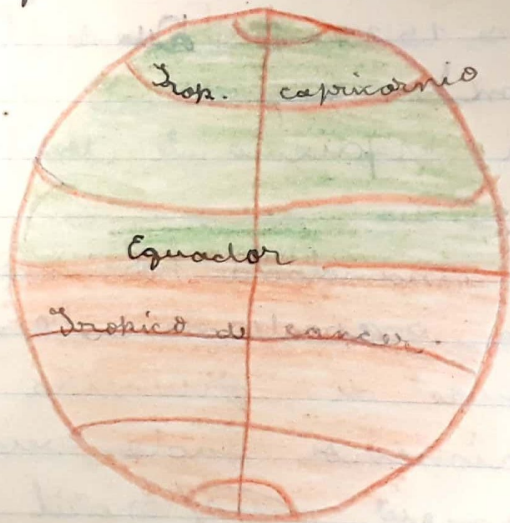 Trop. capricornio
Equador
Tropico de cancer.